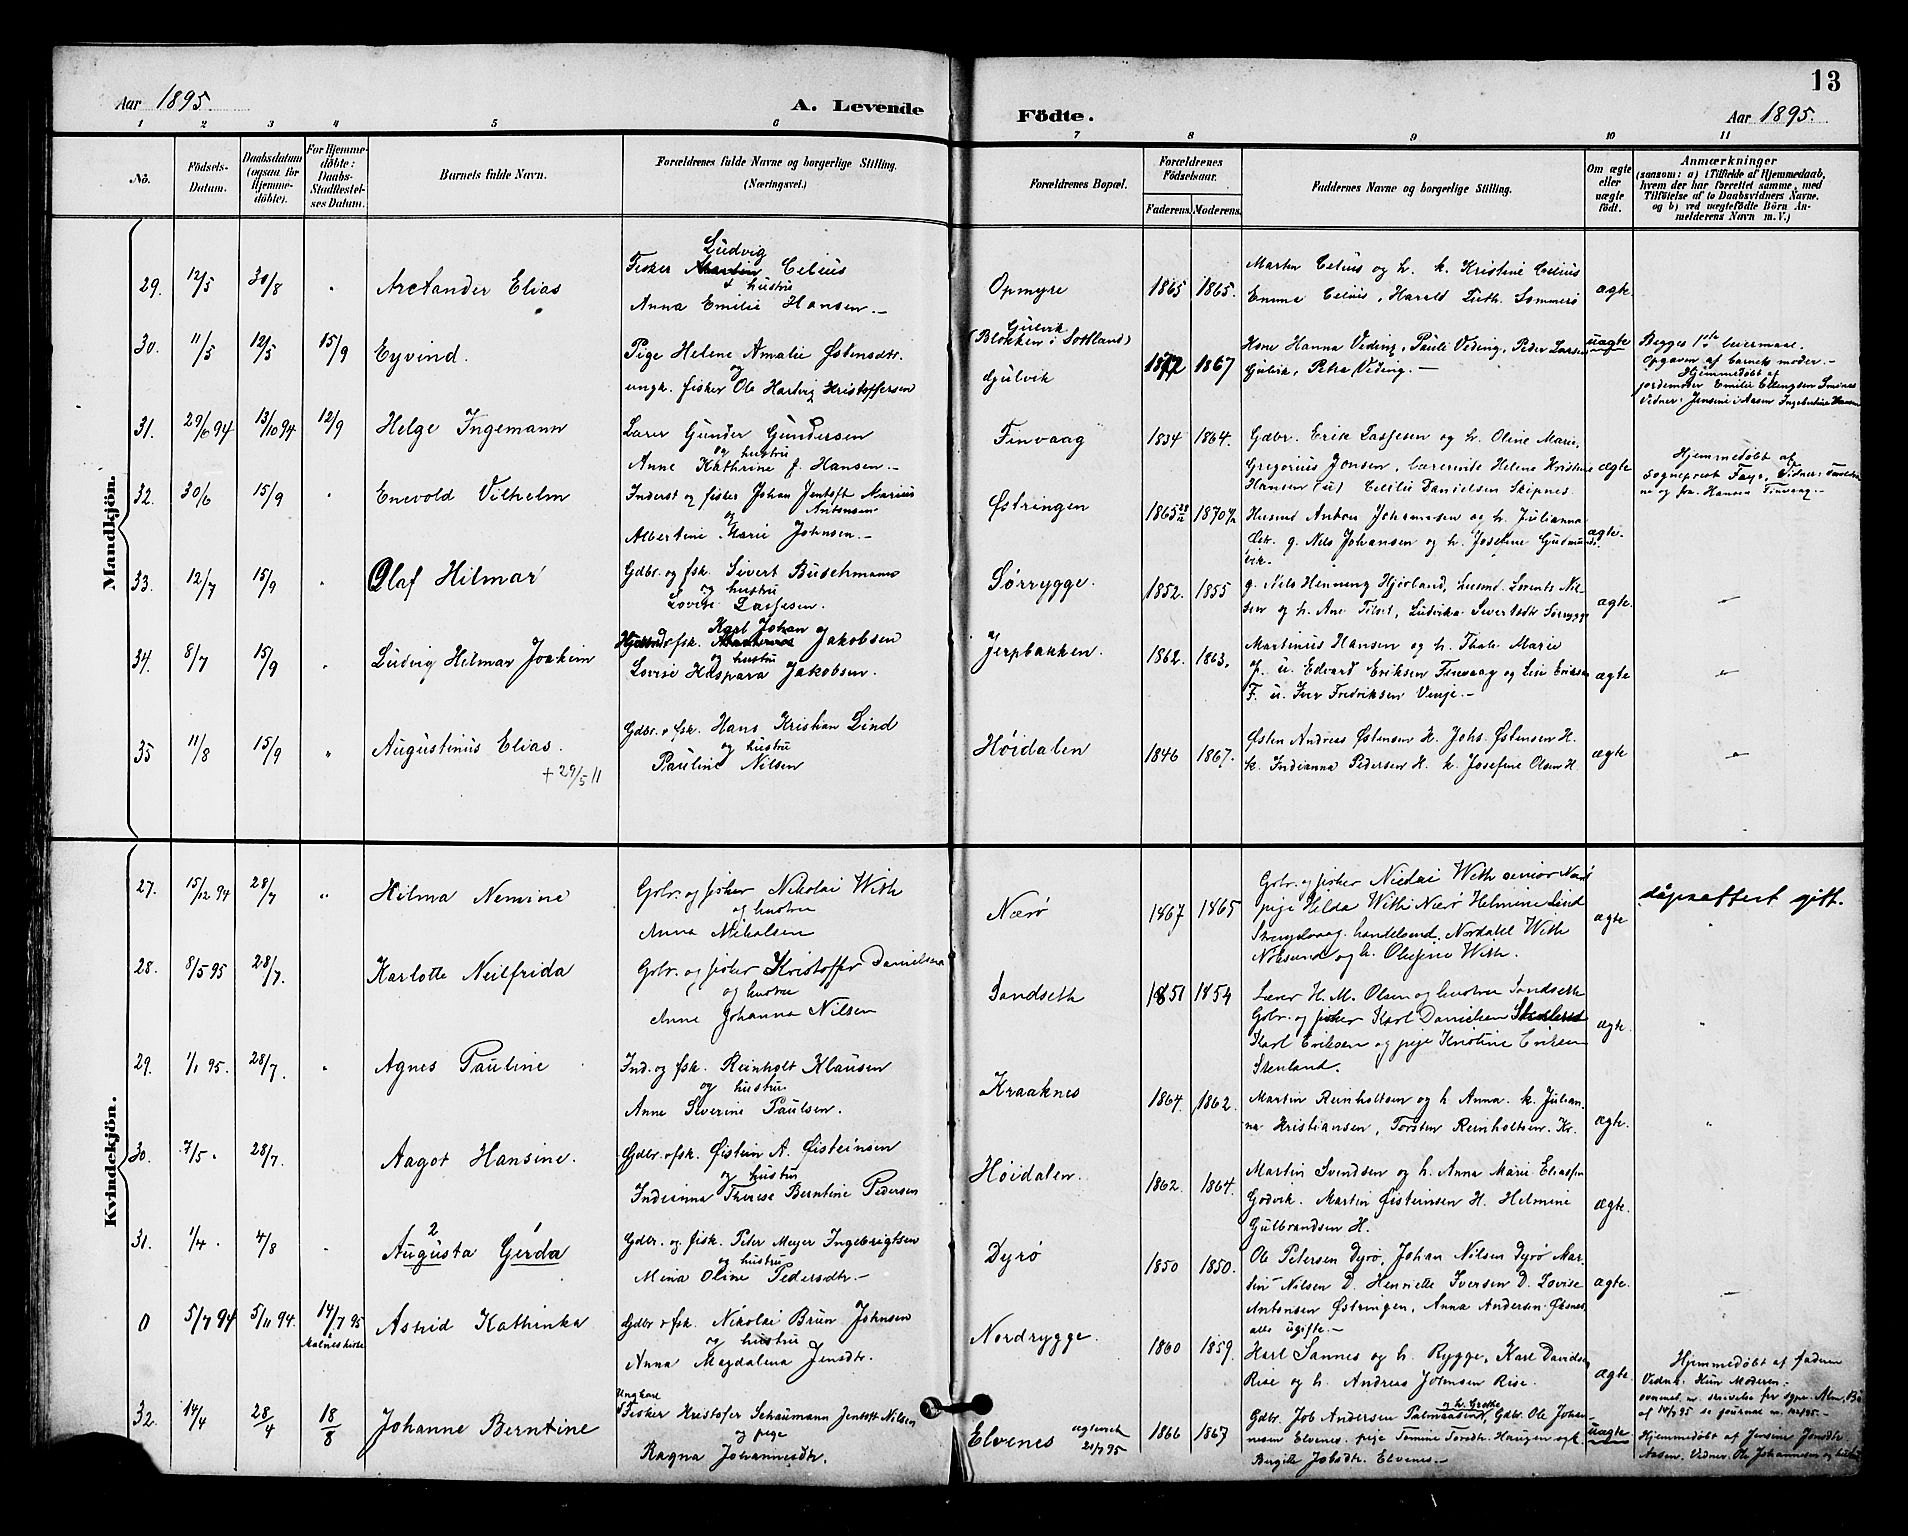 13
Aar 1895. A. Levende Födte. Aar 1895.
1 2 3 4 5 6 7 8 9 10 11
No. Födsels-Datum. Daabsdatum (ogsaa för Hjemmedöbte). For Hjemmedöbte: Daabs-Stadfæstelses Datum. Barnets fulde Navn. Forældrenes fulde Navne og borgerlige Stilling. (Næringsvei.) Forældrenes Bopæl. Forældrenes Födselsaar. Faderens. Moderens. Faddernes Navne og borgerlige Stilling. Om ægte eller uægte födt. Anmærkninger
(saasom: a) i Tilfælde af Hjemmedaab, hvem der har forrettet samme, med Tilföielse af to Daabsvidners Navne. og b) ved uægtefödte Börn Anmelderens Navn m. V.)
Mandkjön.
29. 12/5 30/8 " Arctander Elias Fisker Ludvig Celius
& hustru
Anna Emilie Hansen.- Opmyre 1865 1865. Marten Celius og h. k. Kristine Celius
Emma Celius, Harald Sommerø ægte.
30. 11/5 12/5 15/9 Eyvind. Pige Helene Amalie Østensdtr.
og
ungk. fisker Ole Hartvig Kristoffersen Gulvik
(Blokken i Sortland)
Gulvik 1872 1867 Hanna Veding, Pauli Veding, Peder Larsen
Gulvik, Petra Veding.- uægte Begges 1ste leiermaal.
Opgaver af barnets moder.-
Hjemmedøbt af
jordemoder Emilie Ellingsen
Vidner: Jensine i Aasen Ingebertine Hansen
31. 29/6 94 13/10 94 12/9 Helge Ingemann Lærer Gunder Gundersen
og hustru
Anne Kathrine f. Hansen.- Finvaag 1834 1864. Gdbr. Erik Lassesen og h. Oline Marie,
Gregorius Jonsen, Helene Kristine
Hansen (u) Cecilie Danielsen Skipnes. ægte Hjemmedøbt af
Sogneprest Faye, Vidner:
og fru Hansen Finvaag.-
32. 30/6 15/9 " Enevold Vilhelm Inderst og fisker Johan Jentoft Marius
Antonsen
og
Albertine Marie Johnsen.- Østringen 1865 1870 Husmd Anton Johannesen og h. Julianna
g. Nils Johansen og h. Josefine ægte.
33. 12/7 15/9 " Olaf Hilmar Gdbr. og fsk. Sivert Buschmann
og hustru
Lovise Lassesen. Sørrygge. 1852. 1855 g. Nils Henning Hjorland, husmd. Lorents Nilsen
og h. Ane Tilset, Ludvika Sivertsdtr Sørrygge ægte. -
34. 8/7 15/9 " Ludvig Hilmar Joakim fsk. Karl Johan Jakobsen
og hustru
Lovise Kaspara Jakobsen. Jerpbakken. 1862. 1863. Martinus Hansen og h. Thale Marie
J. u. Edvard Eriksen Finvaag og Lise Eriksen
F. u. Iver Fredriksen Vinje.- ægte -
35 11/8 15/9 " Augustinus Elias.
+ 29/5 11 Gdbr. & fsk. Hans Kristian Lind
og hustru
Pauline Nilsen Høidalen 1846 1867. Østen Andreas Østensen H. Johs. Østensen H.
k. Indianna Pedersen H. k. Josefine Olsen H. ægte -
Kvindekjön.
27. 15/12 94 28/7 " Hilma Nemine Gbr. og fisker Nikolai With
og hustru
Anna Nikolsen Nærø 1867 1865 Gbr. og fisker Nicolai With senior Nærø
pige Hilda With Nærø Helmine Lind
handelsmd. Nordahl With
og h. Olufine With. ægte dåpsattest gitt.
28. 8/5 95 28/7. Karlotte Neilfrida Gbr. og fisker Kristoffer Danielsen
og hustru
Anne Johanna Nilsen Sandseth 1851 1854 Lærer H. M. Olsen og hustru Sandseth
Gbr. og fisker Karl Danielsen
Karl Eriksen og pige Kristine Eriksen
Stenland. ægte "
29. 1/1 95. 28/7. " Agnes Pauline Ind. og fsk. Reinholt Klausen
og hustru
Anne Severine Paulsen. Kraaknes 1864. 1862. Martin Reinholtsen og h. Anna. k. Julianna
Kristiansen, Torsten Reinholtsen. Kr. ægte. "
30. 7/5 . 28/7. Aagot Hansine. Gdbr. & fsk. Øistein A. Øisteinsen
og hustru
Indianna Therese Berntine Pedersen Høidalen. 1862. 1864. Martin Svendsen og h. Anna Marie Eliassen
Godvik. Martin Øisteinsen H. Helmine
Gulbrandsen H. ægte.
31. 1/4 . 4/8 . 2 1
Augusta Gerda Gdbr. og fisk. Peter Meyer Ingebrigtsen
og hustru
Mina Oline Pedersdtr.- Dyrø 1850 1850. Ole Petersen Dyrø, Johan Nilsen Dyrø Martin
Nilsen D. Henriette Iversen D. Lovise
Antonsen Østringen, Anna Andersen Øksnes,
alle ugifte.- ægte. -
0 5/7 94 5/11 94. 14/7 95
Malnes kirke Astrid Kathinka Gdbr & fsk. Nikolai Brun Johnsen
og hustru
Anna Magdalena Jensdtr. Nordrygge. 1860 1859. Karl Sannes og h. Rygge, Karl Davidsen
Rise og h. Andreas Johnsen Rise. ægte. Hjemmedøbt af faderen
Vidne: Kun Moderen.
af 10/7 95 se journal n. 142/95.-
32. 14/4 28/4 18/8 Johanne Berntine Ungkarl
Fisker Kristofer Schaumann Jentoft Nilsen
og pige
Ragna Johannesdtr. Elvenes ægteviet
21/7 95 1866 1867 Gdbr. Job Andersen Palmaasund og h. Grethe, Gdbr. Ole Johannesen
Elvenes. pige Tomine Tordtr. Haugen og k.
Bergitte Jobsdtr. Elvenes.- uægte Hjemmedøbt af Jensine Jonsdtr.
Aasen. Vidner. Ole Johannesen og hustru